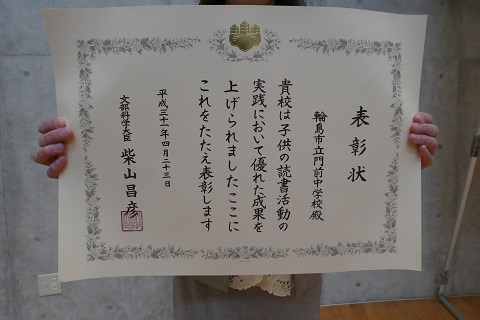 表彰状
輪島市立門前中学校殿
貴校は子供の読書活動の
実践において優れた成果を
上げられましたここに
これをたたえ表彰します
平成三十一年四月二十三日
文部科学大臣 柴山昌彦